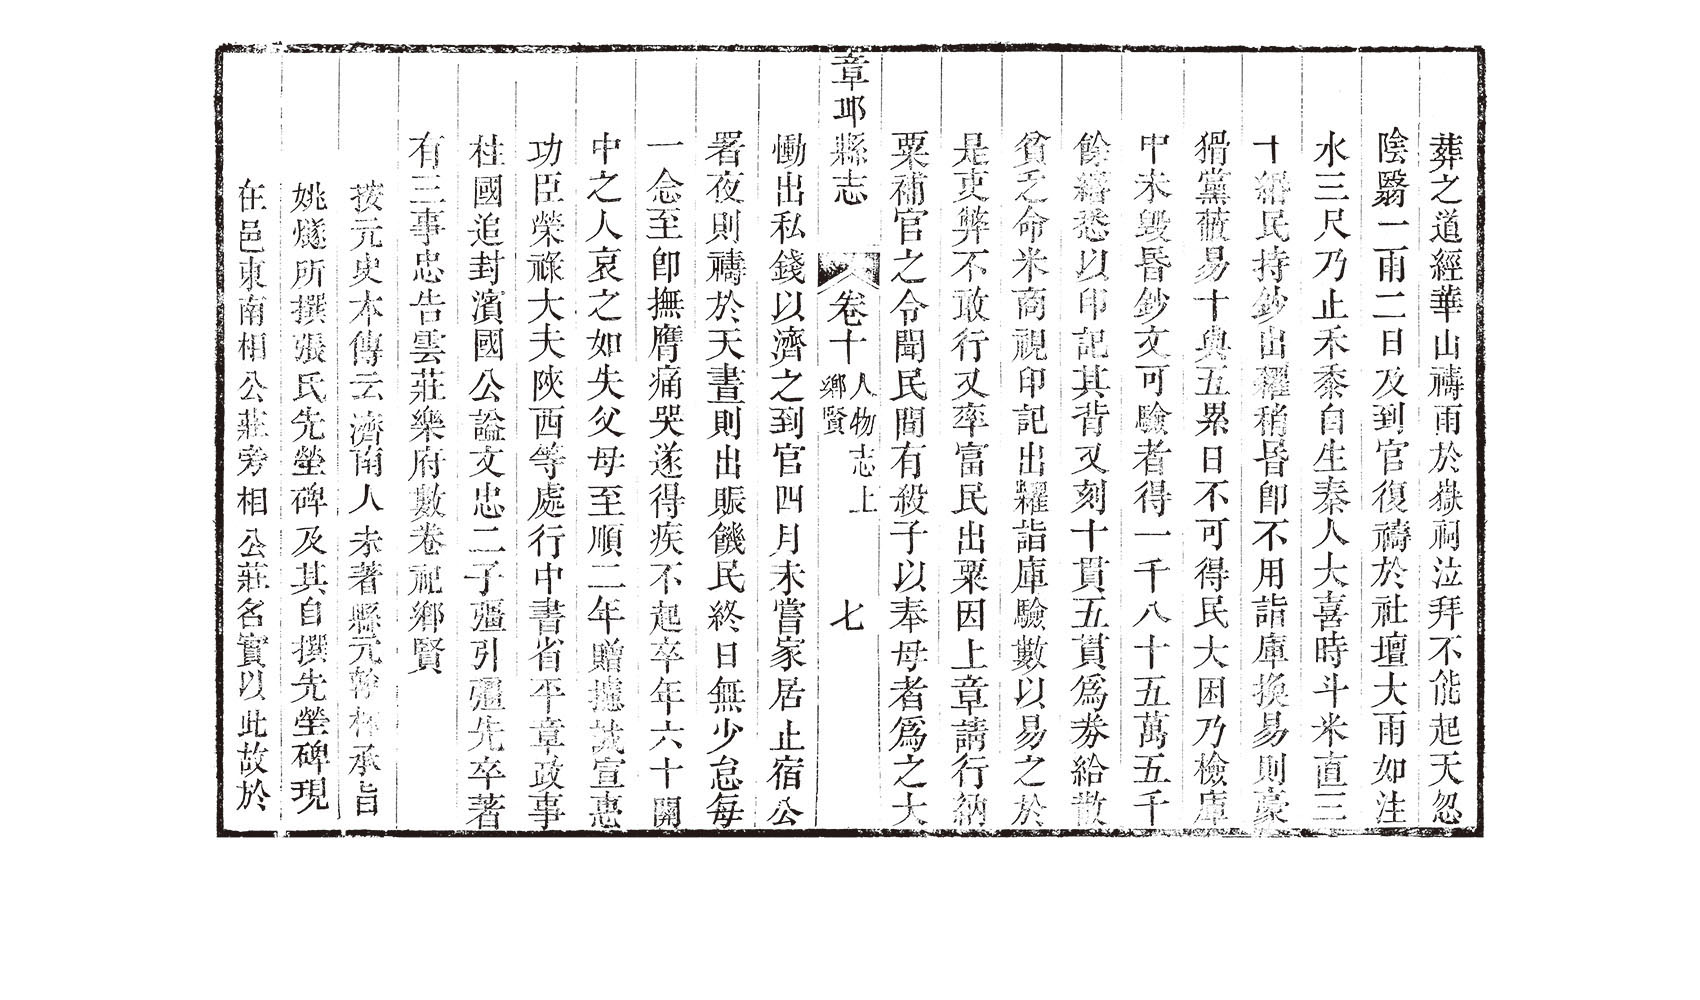 葬之道經華山禱雨於嶽祠泣拜不能起天忽
陰翳一雨二日及到官復禱於社壇大雨如注
水三尺乃止禾黍自生秦人大喜時斗米直三
十緡民持鈔出糴稍昬卽不用詣庫換易則豪
猾黨蔽易十與五累日不可得民大困乃檢庫
中未毀昬鈔文可驗者得一千八十五萬五千
餘緡悉以印記其背又刻十貫五貫爲劵給散
貧乏命米商視印記出糶詣庫驗數以易之於
是吏弊不敢行又率富民出粟因上章請行納
粟補官之令聞民間有殺子以奉母者爲之大
章邱縣志 卷十 人物志上 鄉賢 七
慟出私錢以濟之到官四月未嘗家居止宿公
署夜則禱於天晝則出賑饑民終日無少怠每
一念至卽撫膺痛哭遂得疾不起卒年六十關
中之人哀之如失父母至順二年贈攄誠宣惠
功臣榮祿大夫陝西等處行中書省平章政事
柱國追封濱國公諡文忠二子彊引彊先卒著
有三事忠告雲莊樂府數卷祀鄉賢
按元史本傳云濟南人未著縣元翰林承旨
姚燧所撰張氏先塋碑及其自撰先塋碑現
在邑東南相公莊旁相公莊名實以此故於